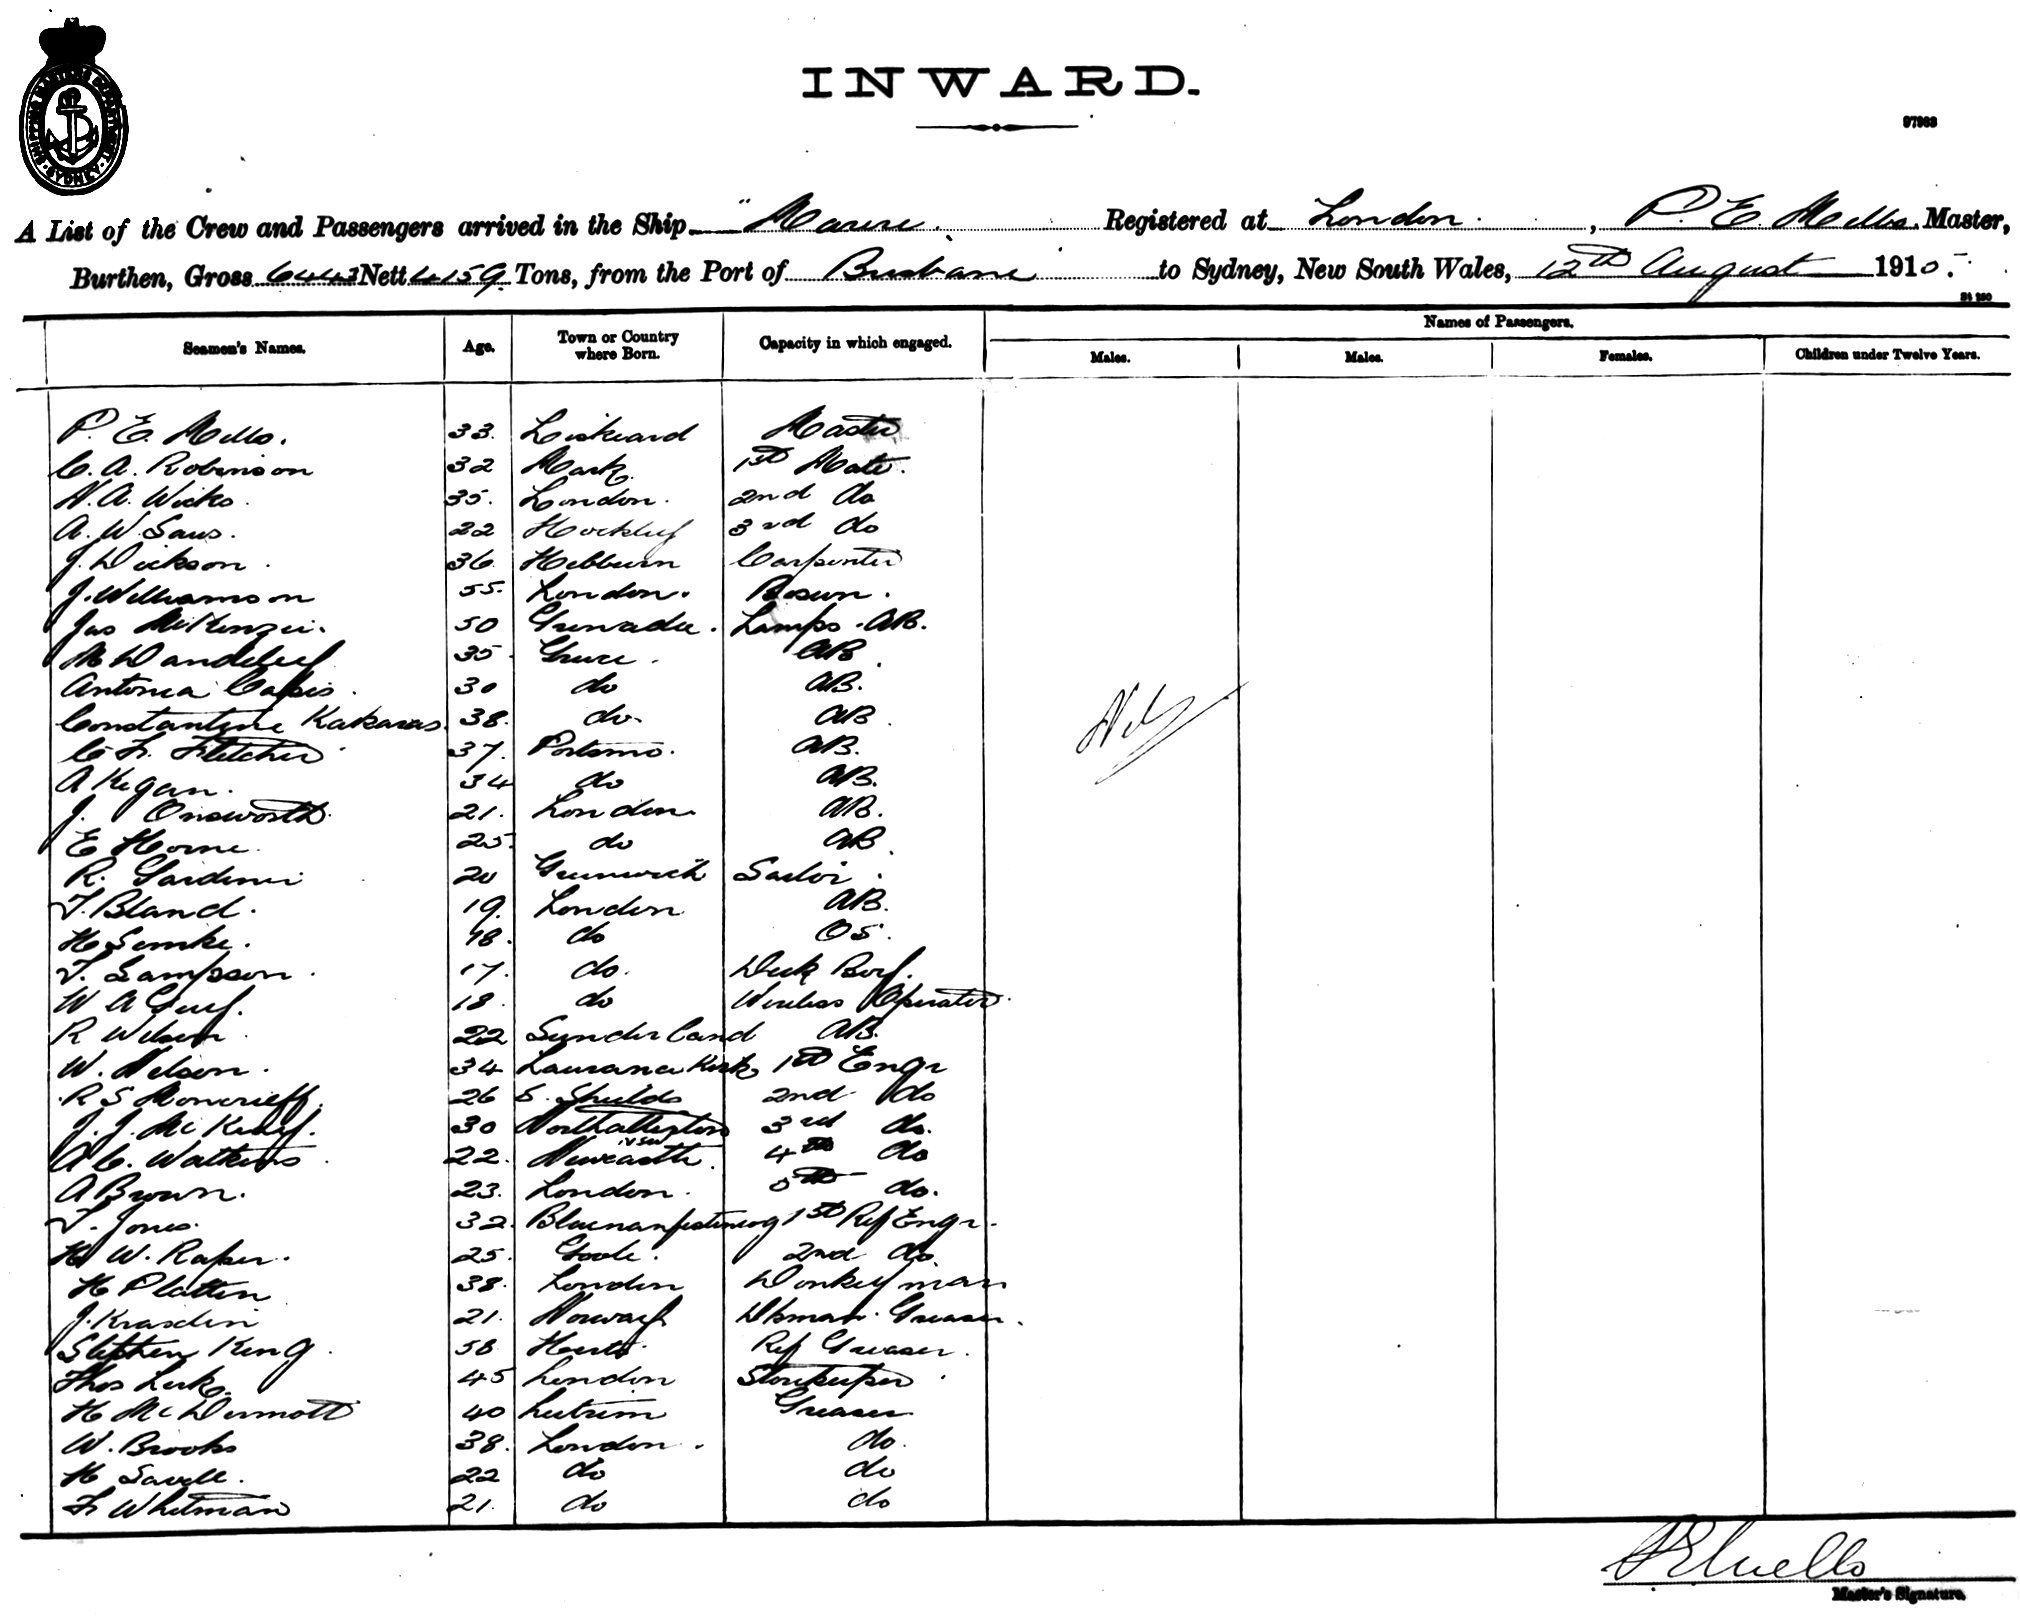 SHIPPING MASTERS DEPARTMENT SYDNEY
INWARD.
97963
A List of the Crew and Passengers arrived in the Ship " Marere. Registered at London. , P. E. Mello. Master,
Burthen, Gross 6443 Nett 4159 Tons, from the Port of Brisbane to Sydney, New South Wales, 12th August 1910.
Seamen's Names. Age. Town or Country where Born. Capacity in which engaged. Names of Passengers.
Males. Males. Females. Children under Twelve Years.
P. E. Mello. 33. Liskeard Master
C. A. Robinson 32 Mark. 1st Mate.
N. A. Wicks. 35. London. 2nd do
A. W. Saus. 22 Hockley 3rd do
J. Dickson. 36 Hebburn Carpenter
J. Williamson 55. London. Bosun.
Jas McKenzie. 50 Grenada. Lamps. AB.
M 35. Greece. AB.
Antonia Capsis. 30 do AB.
Constantine Kakaras. 38. do. AB.
C. F. Fletcher 37. Portsmo. AB.
A Kegan. 34 do AB.
J. Onsworth. 21. London. AB.
E Horne. 25. do AB.
R. Gardiner 20 Greenwich Sailor.
T. Bland. 19. London AB.
H Semke. 18. do OS.
T. Sampson. 17. do. Deck Boy.
W A Guy. 18. do Wireless Operator.
R Wilson. 22 Sunderland AB.
W. Nelson. 34 Laurance Kirk 1st Engr
R S Moncrieff. 26 S. Shields 2nd do
J. J. McKay. 30 Northallerton 3rd do.
A C. Watkins. 22. Newcastle NSW. 4th do
A Brown. 23. London. 5th do.
T. Jones. 32. Blaenanfestineog 1st Ref Engr.
H W. Raper. 25. Goole. 2nd do.
H Platten 38. London Donkeyman
J. Krasdin 21. Norway Dkman. Greaser.
Stephen King. 58 Herts. Ref Greaser.
Thos Lek. 45 London Storekeeper.
H McDermott 40 Leitrim Greaser
W. Brooks 38. London. do.
H Savell. 22 do do
F Whitman 21. do do
Nil
P E Mello
Master's Signature.